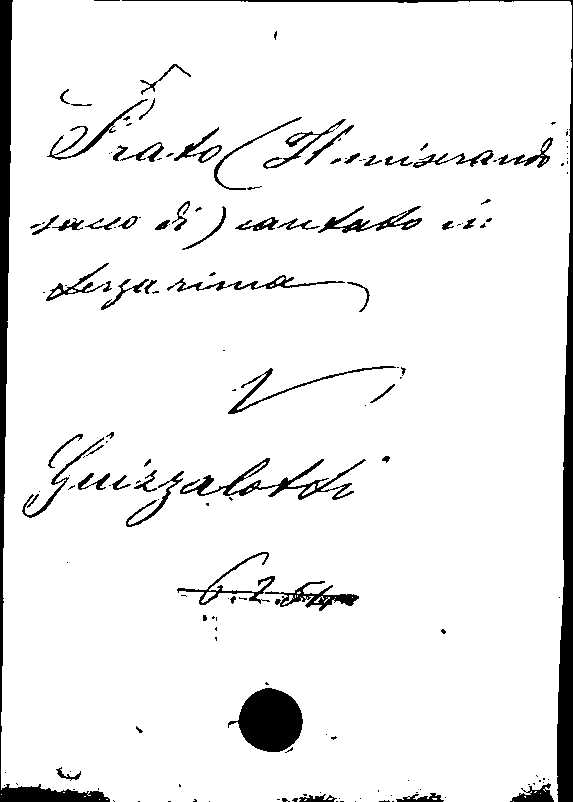 Prato (Il miserando
sacco di) cantato in
terza rima
V
Guizzalotti
6.2.54